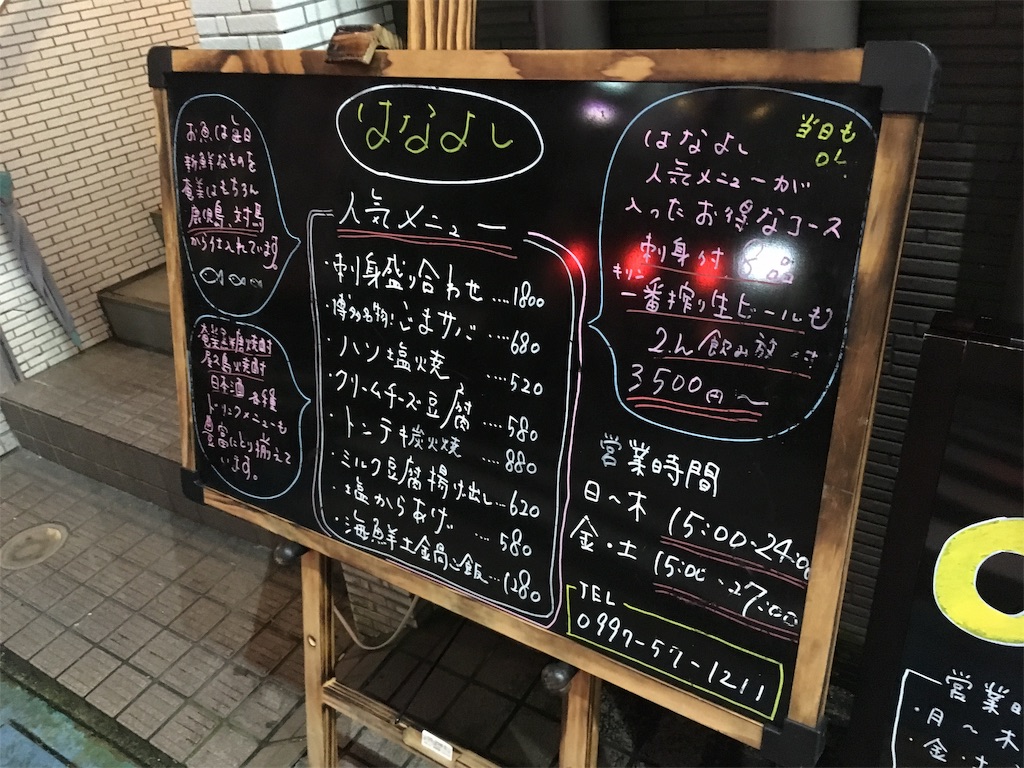 はなよし
お魚は毎日
新鮮なものを
奄美はもちろん
鹿児島、対馬
から仕入れています。
奄美黒糖焼酎
鹿児島焼酎
日本酒 各種
ドリンクメニューも
豊富にとり揃えて
います。
人気メニュー
・刺身盛り合わせ…1800
・博多名物!ごまサバ…680
・ハツ塩火焼…520
・クリームチーズ豆腐…580
・トンテキ炭火焼…880
・ミルク豆腐揚げ出し…620
・塩からあげ…580
・海鮮土鍋ご飯…1280
当日も
O.K
はなよし
人気メニューが
入ったお得なコース
刺身付
キリン
一番搾り生ビールも
2h飲み放付き
3500円〜
営業時間
日〜木 15:00-24:00
金・土 15:00-27:00
TEL
0997-57-1211
営業
・月〜木
・金・土